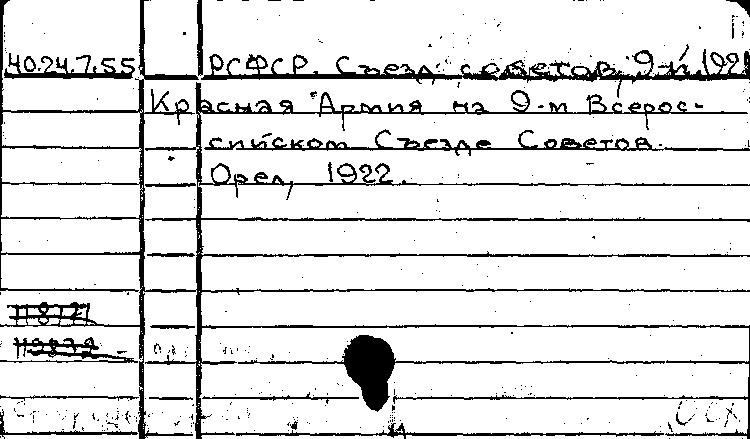 40.24.7.55 РСФСР. Съезд советов, 9-й, 1921
Красная Армия на 9-м Всерос-
сийском Съезде Советов.
Орел, 1922.